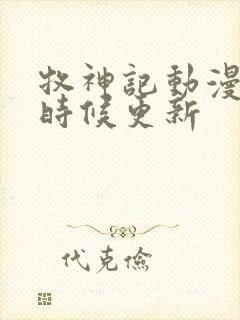 牧神記動漫
時候更新
代克儉